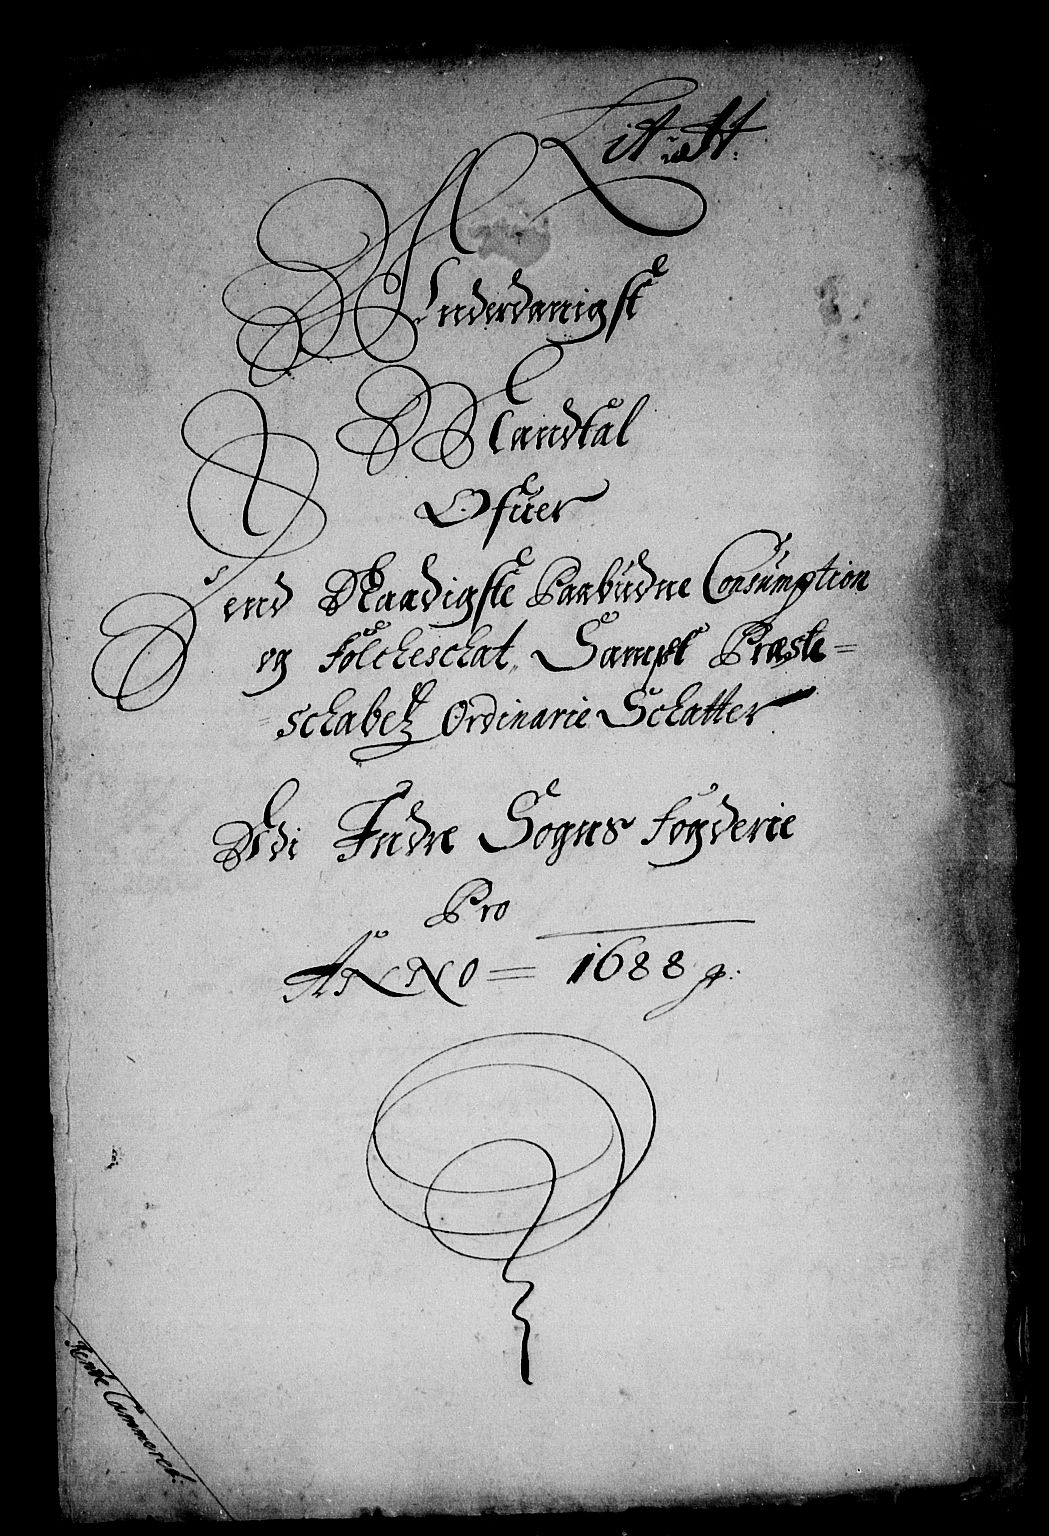 Underdanigste
Mandtal
Ofuer
Dend Naadigste Paabudne Consumption
og folckeschat, Sampt Præste=
=schabetz Ordinarie Schatter
Udi Indre Sogns fogderie
Pro
ANNO = 1688
Rente Cammeret: